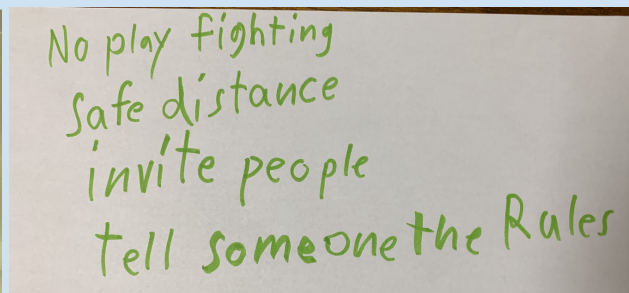 No play fighting
safe distance
invite people
tell someone the Rules